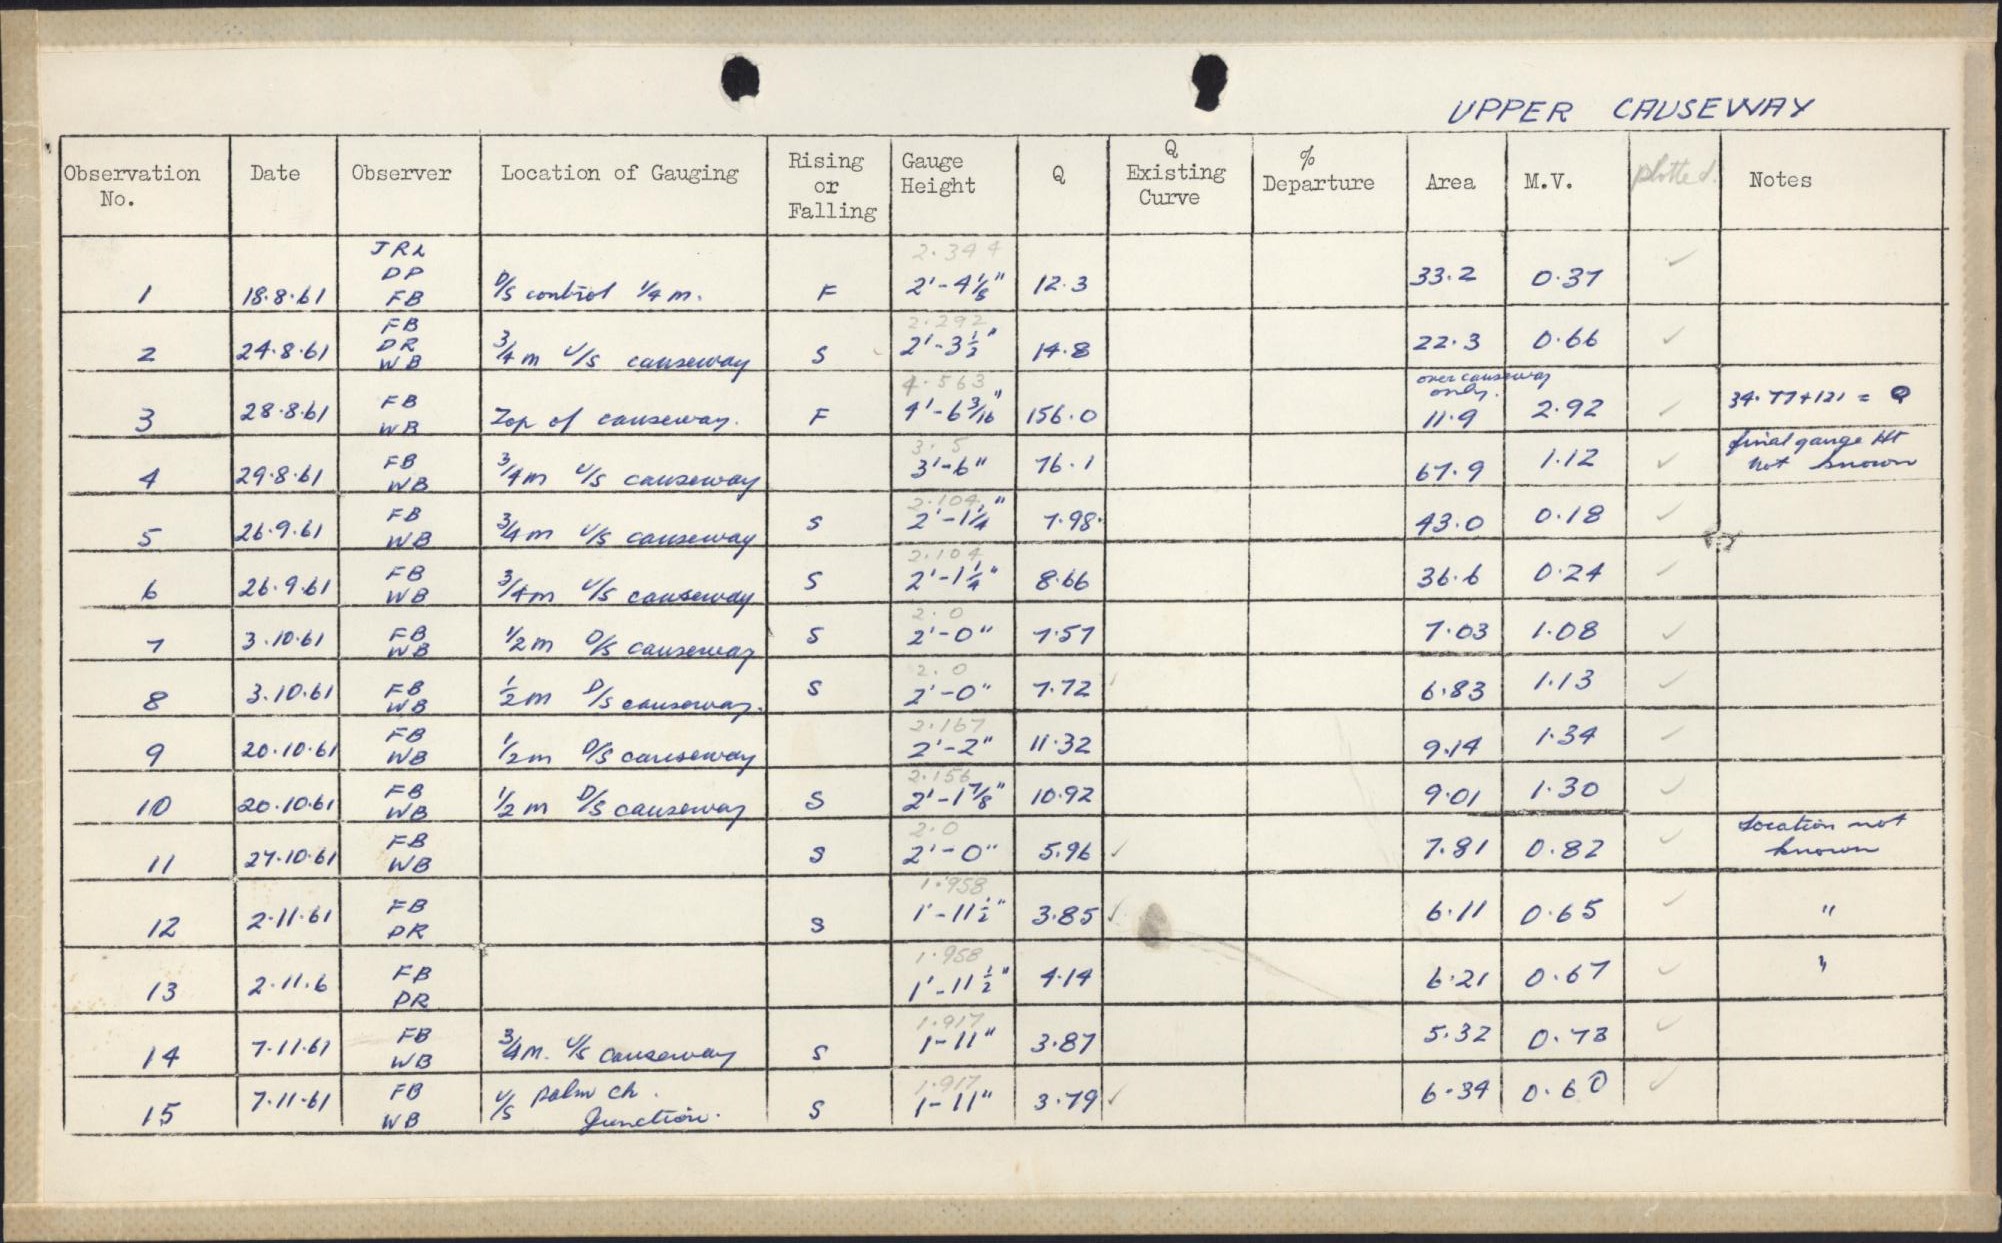 UPPER CAUSEWAY
Observation No. | Date | Observer | Location of Gauging | Rising or Falling | Gauge Height | Q | Q Existing Curve | % Departure | Area | M.V. | plotted. | Notes
1 | 18.8.61 | JRL DP FB | D/S control 1/4 m. | F | 2.344 2'-4 1/8" | 12.3 | | | 33.2 | 0.37 | ✓ |
2 | 24.8.61 | FB DR WB | 3/4 m U/S causeway | S | 2.292 2'-3 1/2" | 14.8 | | | 22.3 | 0.66 | ✓ |
3 | 28.8.61 | FB WB | Top of causeway. | F | 4.563 4'-6 3/16" | 156.0 | | | over causeway only. 11.9 | 2.92 | ✓ | 34.77+121 = Q
4 | 29.8.61 | FB WB | 3/4 m U/S causeway | | 3.5 3'-6" | 76.1 | | | 67.9 | 1.12 | ✓ | final gauge Ht not known
5 | 26.9.61 | FB WB | 3/4 m U/S causeway | S | 2.104 2'-1 1/4" | 7.98. | | | 43.0 | 0.18 | ✓ |
6 | 26.9.61 | FB WB | 3/4 m U/S causeway | S | 2.104 2'-1 1/4" | 8.66 | | | 36.6 | 0.24 | ✓ |
7 | 3.10.61 | FB WB | 1/2 m D/S causeway | S | 2.0 2'-0" | 7.57 | | | 7.03 | 1.08 | ✓ |
8 | 3.10.61 | FB WB | 1/2 m D/S causeway. | S | 2.0 2'-0" | 7.72 | | | 6.83 | 1.13 | ✓ |
9 | 20.10.61 | FB WB | 1/2 m D/S causeway | | 2.167 2'-2" | 11.32 | | | 9.14 | 1.34 | ✓ |
10 | 20.10.61 | FB WB | 1/2 m D/S causeway | S | 2.156 2'-1 7/8" | 10.92 | | | 9.01 | 1.30 | ✓ |
11 | 27.10.61 | FB WB | | S | 2.0 2'-0" | 5.96 | ✓ | | 7.81 | 0.82 | ✓ | Location not known
12 | 2.11.61 | FB DR | | S | 1.958 1'-11 1/2" | 3.85 | ✓ | | 6.11 | 0.65 | ✓ | "
13 | 2.11.6 | FB DR | | | 1.958 1'-11 1/2" | 4.14 | | | 6.21 | 0.67 | ✓ | "
14 | 7.11.61 | FB WB | 3/4 m. U/S causeway | S | 1.917 1-11" | 3.87 | | | 5.32 | 0.73 | ✓ |
15 | 7.11.61 | FB WB | U/S Palm Ch. Junction. | S | 1.917 1-11" | 3.79 | ✓ | | 6.34 | 0.60 | ✓ |